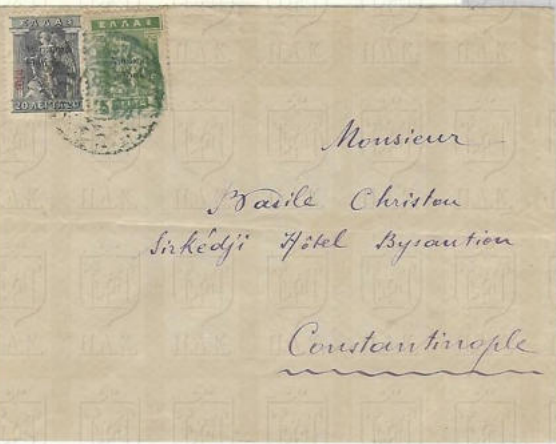 ΕΛΛΑΣ ΕΛΛΑΣ
20 ΛΕΠΤΑ 20
Monsieur
Basile Christou
Sirkédji Hôtel Bysantion
Constantinople